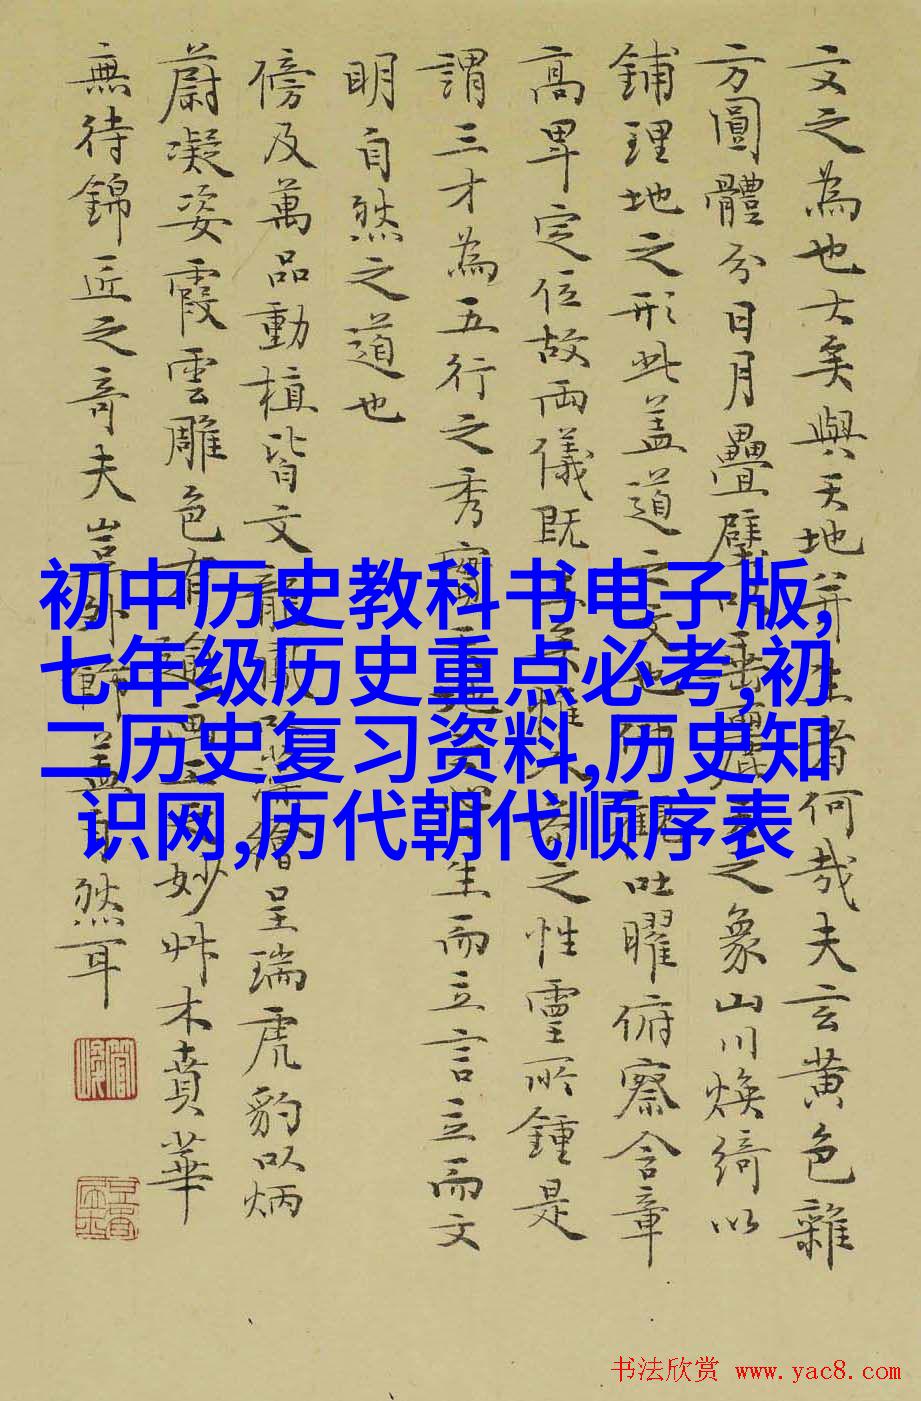 文之為也大矣與天地并生者何哉夫玄黄色雜
方圓體分日月疊璧以垂麗天之象山川煥綺以
鋪理地之形此盖道之文也仰觀吐曜俯察含章
高卑定位故兩儀既生矣惟人參之性靈所鍾是
謂三才為五行之秀實天地之心生而立言立而文
明自然之道也
傍及萬品動植皆文龍鳳以藻繪呈瑞虎豹以炳
蔚凝姿霞雲雕色有踰畫工之妙艸木賁華
無待錦匠之奇夫豈外飾盖自然耳
初中历史教科书电子版,
七年级历史重点必考,初
二历史复习资料,历史知
识网,历代朝代顺序表
书法欣赏 www.yac8.com